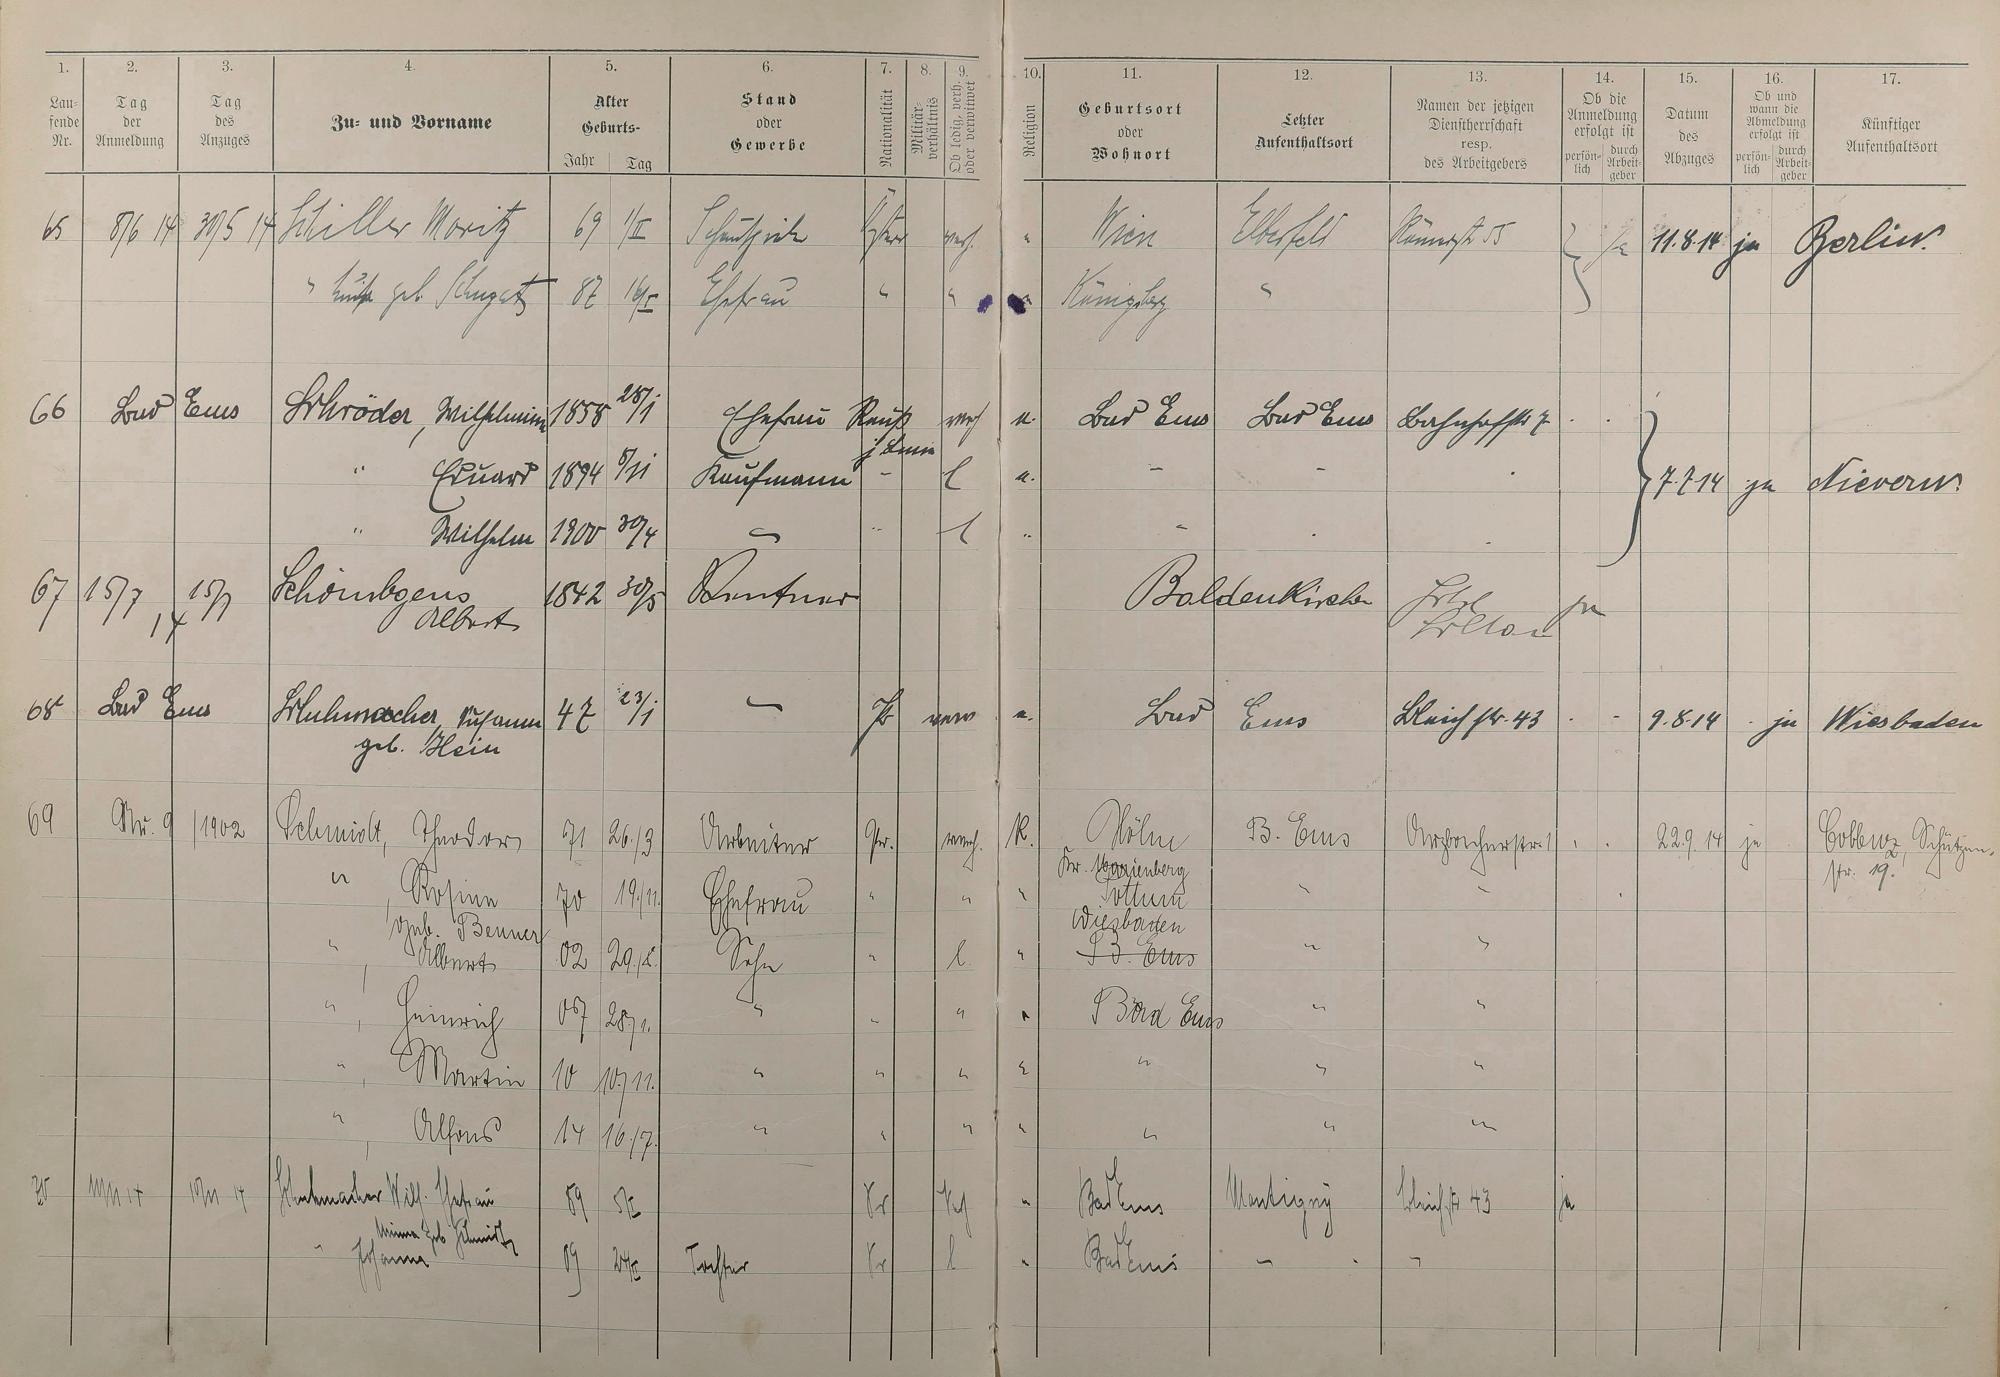 1. 2. 3. 4. 5. 6. 7. 8. 9. 10. 11. 12. 13. 14. 15. 16. 17.
Lau-
fende
Nr.
Tag
der
Anmeldung
Tag
des
Anzuges
Zu- und Vorname
Alter
Geburts-
Jahr Tag
Stand
oder
Gewerbe
Nationalität
Militär-
verhältnis
Ob ledig, verh.
oder verwitwet
Religion
Geburtsort
oder
Wohnort
Letzter
Aufenthaltsort
Namen der jetzigen
Dienstherrschaft
resp.
des Arbeitgebers
Ob die
Anmeldung
erfolgt ist
persön-
lich
durch
Arbeit-
geber
Datum
des
Abzuges
Ob und
wann die
Abmeldung
erfolgt ist
persön-
lich
durch
Arbeit-
geber
Künftiger
Aufenthaltsort
65 8/6 14 30/5 14 Schiller Moritz 69 1/II verh. " Wien Elberfeld Römerstr 55 ja 11.8.14 ja Berlin.
" geb. 87 Ehefrau " " Königsberg "
66 Bad Ems Schröder, Wilhelmine 1858 28/1 Ehefrau verh e. Bad Ems Bad Ems Bahnhofstr 7
" Eduard 1894 8/11 Kaufmann - l e. - - 7.7.14 ja Nievern.
" Wilhelm 1900 30/4 - " l " -
67 15/7 15/7 Schönebgens 1842 30/5 Rentner Baldenkirchen ja
14 Albert
68 Bad Ems Schuhmacher, Susanne 47 23/1 - Pr verw e. Bad Ems Bleichstr. 43 9.8.14 ja Wiesbaden
geb. Hein
69 Nr. 9 /1902 Schmidt, Theodor 71 26./3 Arbeiter Pr. verh. K. Höhn B. Ems Arzbacherstr. 1 22.9.14 ja Coblenz, Schützen-
Kr. Marienberg str. 19.
" , Rosine 70 19./11. Ehefrau " " " Pottum " "
geb. Benner Wiesbaden
" , Albert 02 29./8. Sohn " l. " B. Ems " "
" , Heinrich 07 28/1. " " " " Bad Ems " "
" , Martin 10 10/11. " " " " " " "
" , Alfons 14 16./7. " " " " " " "
70 10/11 14 10/11 14 Schuhmacher Wilh. Ehefrau 89 Pr Verh " Bad Ems Montigny Bleichstr 43 ja
Minna geb Schmidt
" Johanna 09 Tochter Pr l " Bad Ems - -